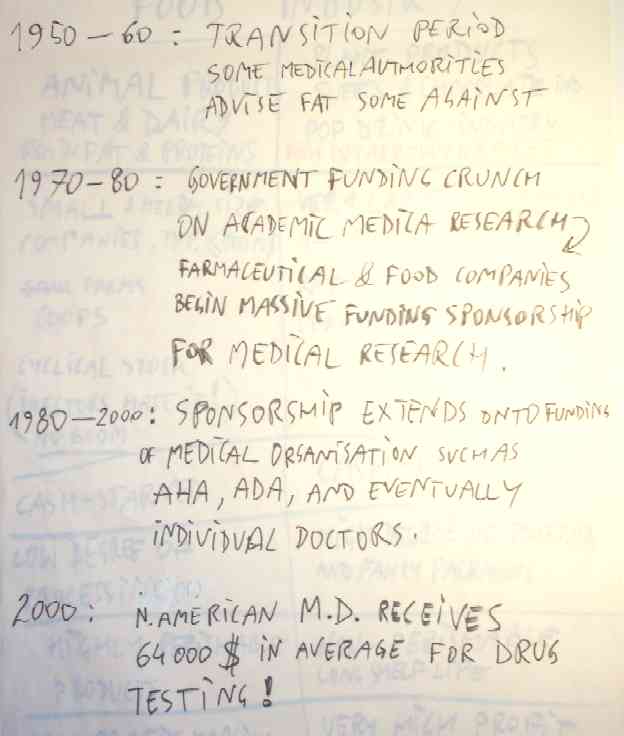 1950-60 : TRANSITION PERIOD
SOME MEDICAL AUTHORITIES
ADVISE FAT SOME AGAINST
1970-80 : GOVERNMENT FUNDING CRUNCH
ON ACADEMIC MEDICA RESEARCH
FARMACEUTICAL & FOOD COMPANIES
BEGIN MASSIVE FUNDING SPONSORSHIP
FOR MEDICAL RESEARCH.
1980-2000: SPONSORSHIP EXTENDS ONTO FUNDING
OF MEDICAL ORGANISATION SUCH AS
AHA, ADA, AND EVENTUALLY
INDIVIDUAL DOCTORS.
2000: N. AMERICAN M.D. RECEIVES
64000 $ IN AVERAGE FOR DRUG
TESTING!